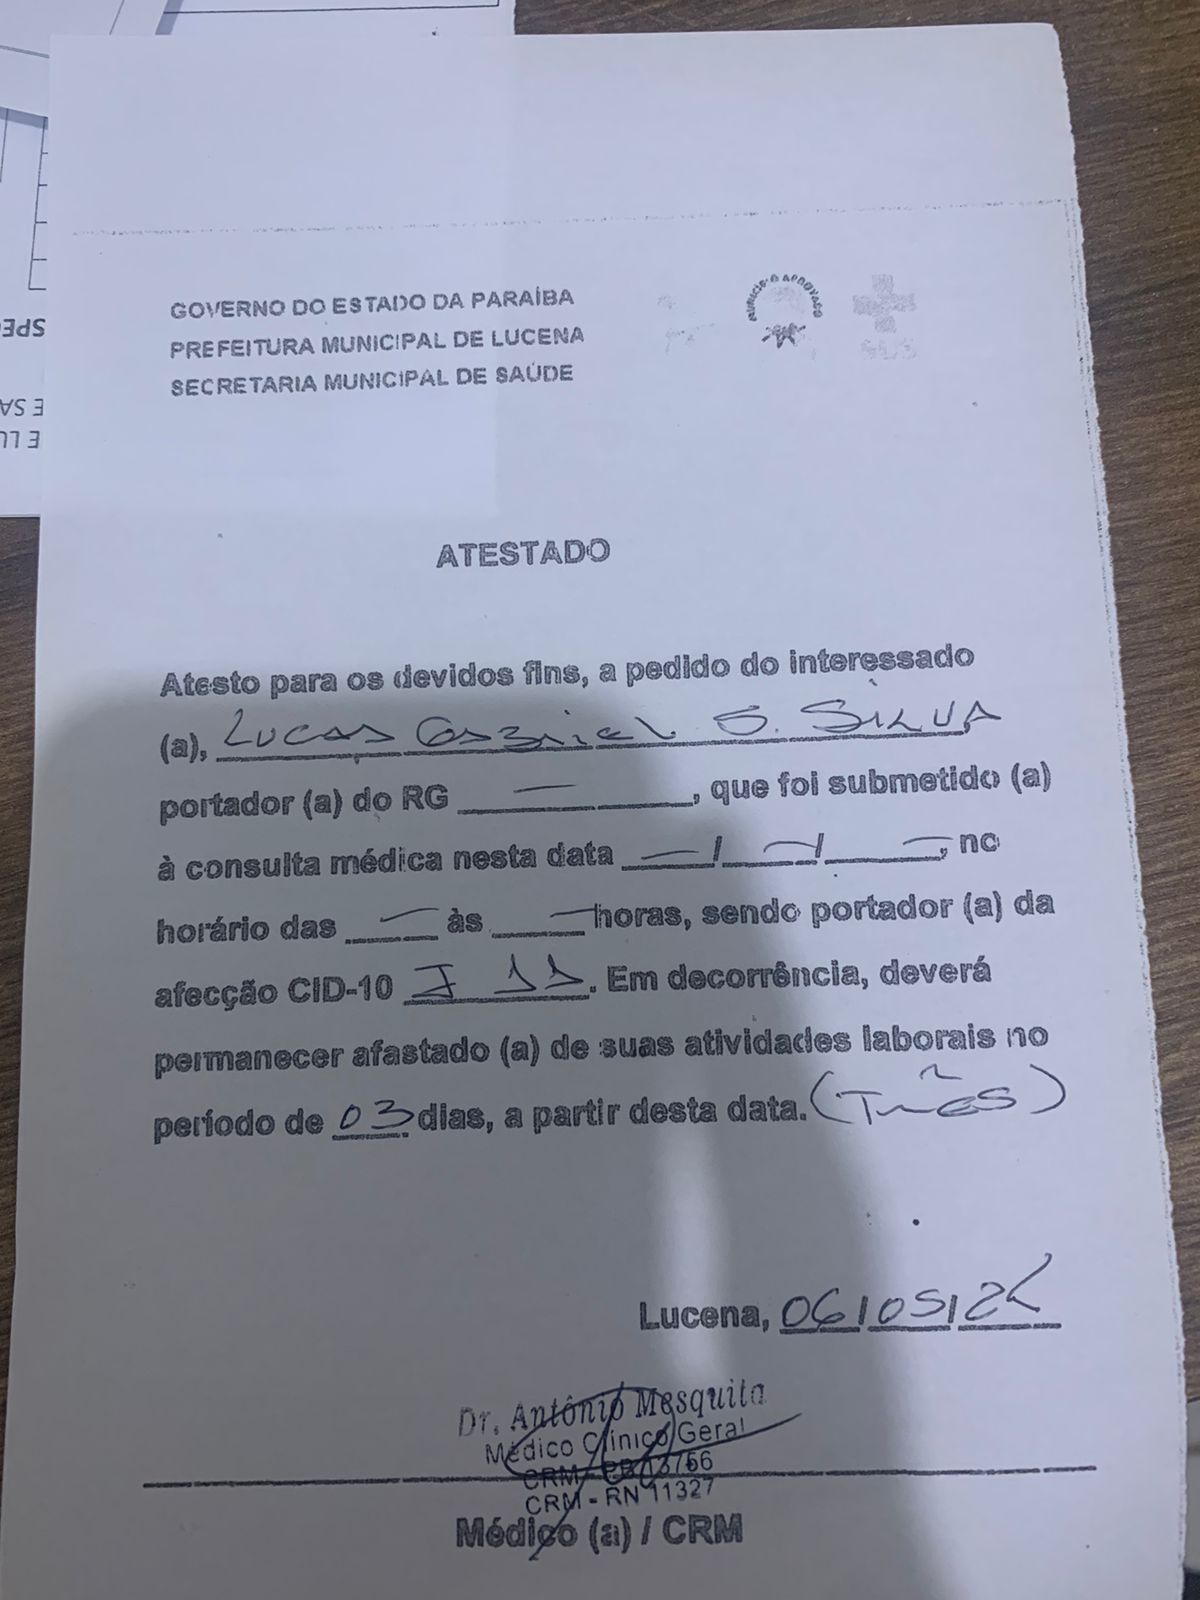 GOVERNO DO ESTADO DA PARAÍBA
PREFEITURA MUNICIPAL DE LUCENA
SECRETARIA MUNICIPAL DE SAÚDE
SUS
ATESTADO
Atesto para os devidos fins, a pedido do interessado
(a), Lucas Gabriel S. Silva
portador (a) do RG —, que foi submetido (a)
à consulta médica nesta data —/—/—, no
horário das — às — horas, sendo portador (a) da
afecção CID-10 J 11. Em decorrência, deverá
permanecer afastado (a) de suas atividades laborais no
período de 03 dias, a partir desta data. (Três)
Lucena, 06/05/
Dr. Antônio Mesquita
Médico Clínico Geral
CRM - PB
CRM - RN 11327
Médico (a) / CRM